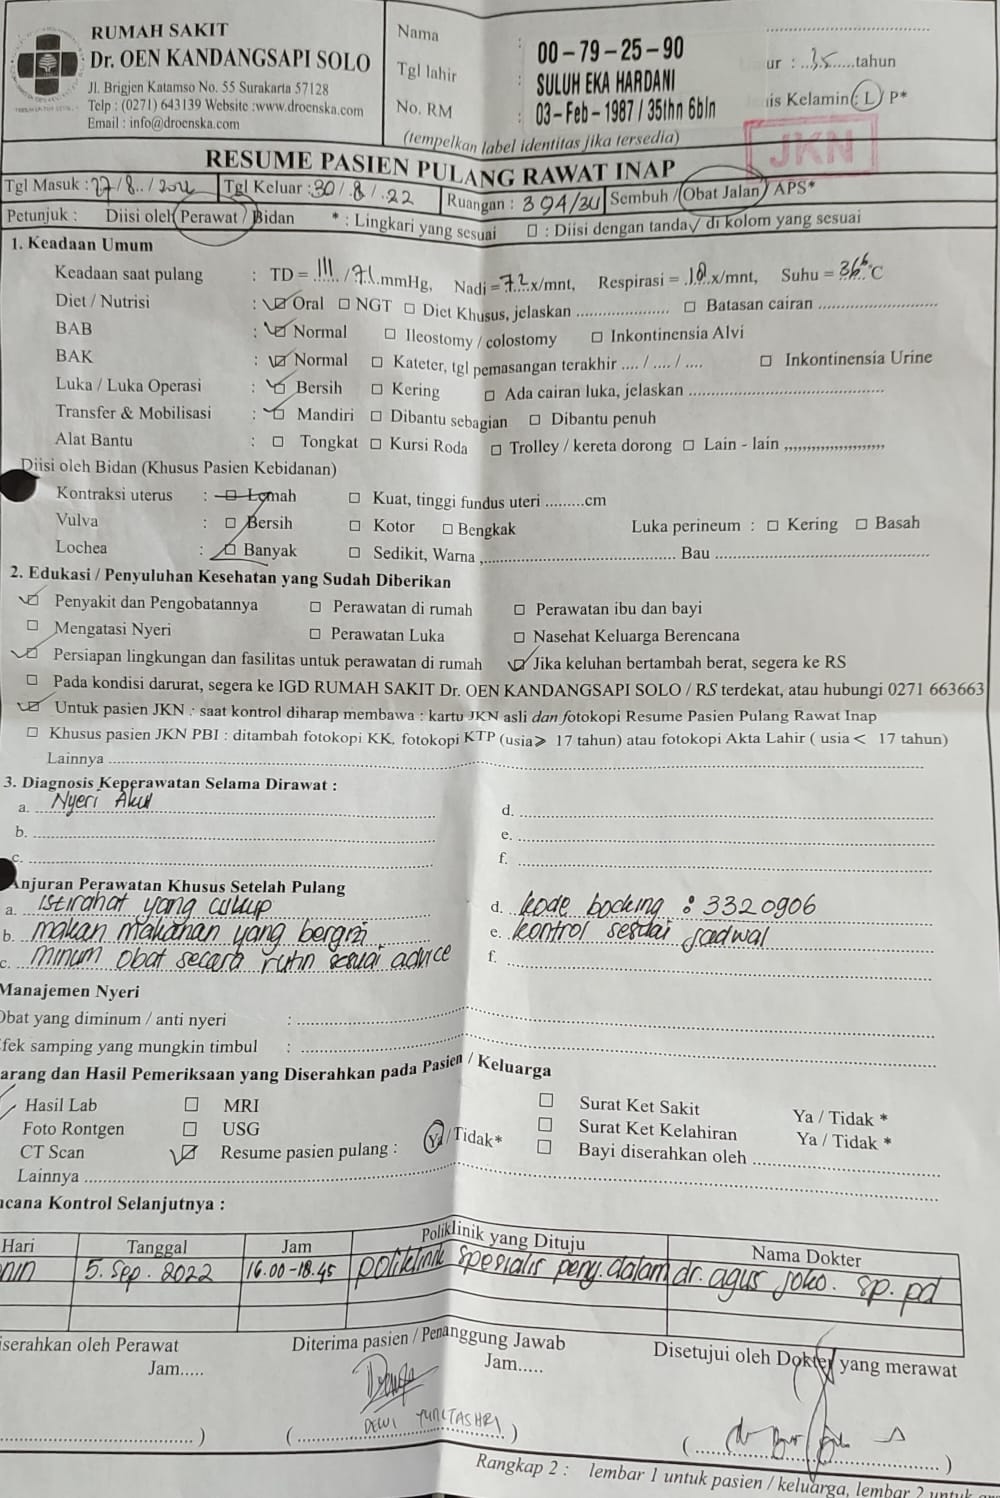 RUMAH SAKIT
Dr. OEN KANDANGSAPI SOLO
Jl. Brigjen Katamso No. 55 Surakarta 57128
Telp : (0271) 643139 Website :www.droenska.com
Email : info@droenska.com
Nama : 00-79-25-90
ur : 35 tahun
Tgl lahir : SULUH EKA HARDANI
is Kelamin : L / P*
No. RM : 03-Feb-1987 / 35thn 6bln
(tempelkan label identitas jika tersedia)
JKN
RESUME PASIEN PULANG RAWAT INAP
Tgl Masuk : 27/8../2022 Tgl Keluar : 30/.8/.22 Ruangan : 394/3U Sembuh / Obat Jalan / APS*
Petunjuk : Diisi oleh Perawat / Bidan * : Lingkari yang sesuai □ : Diisi dengan tanda √ di kolom yang sesuai
1. Keadaan Umum
Keadaan saat pulang : TD = 111 / 71 mmHg, Nadi = 72 x/mnt, Respirasi = 18 x/mnt, Suhu = 36⁶ °C
Diet / Nutrisi : ☑ Oral □ NGT □ Diet Khusus, jelaskan .................... □ Batasan cairan ....................
BAB : ☑ Normal □ Ileostomy / colostomy □ Inkontinensia Alvi
BAK : ☑ Normal □ Kateter, tgl pemasangan terakhir .... / .... / .... □ Inkontinensia Urine
Luka / Luka Operasi : ☑ Bersih □ Kering □ Ada cairan luka, jelaskan ....................
Transfer & Mobilisasi : ☑ Mandiri □ Dibantu sebagian □ Dibantu penuh
Alat Bantu : □ Tongkat □ Kursi Roda □ Trolley / kereta dorong □ Lain - lain ,,,,,,,,,,,,,,,,,,,,
Diisi oleh Bidan (Khusus Pasien Kebidanan)
Kontraksi uterus : □ Lemah □ Kuat, tinggi fundus uteri .........cm
Vulva : □ Bersih □ Kotor □ Bengkak Luka perineum : □ Kering □ Basah
Lochea : □ Banyak □ Sedikit, Warna ,.................... Bau ....................
2. Edukasi / Penyuluhan Kesehatan yang Sudah Diberikan
☑ Penyakit dan Pengobatannya □ Perawatan di rumah □ Perawatan ibu dan bayi
□ Mengatasi Nyeri □ Perawatan Luka □ Nasehat Keluarga Berencana
☑ Persiapan lingkungan dan fasilitas untuk perawatan di rumah ☑ Jika keluhan bertambah berat, segera ke RS
□ Pada kondisi darurat, segera ke IGD RUMAH SAKIT Dr. OEN KANDANGSAPI SOLO / RS terdekat, atau hubungi 0271 663663
☑ Untuk pasien JKN : saat kontrol diharap membawa : kartu JKN asli dan fotokopi Resume Pasien Pulang Rawat Inap
□ Khusus pasien JKN PBI : ditambah fotokopi KK, fotokopi KTP (usia ⩾ 17 tahun) atau fotokopi Akta Lahir ( usia < 17 tahun)
Lainnya
3. Diagnosis Keperawatan Selama Dirawat :
a. Nyeri Akut d.
b. e.
c. f.
Anjuran Perawatan Khusus Setelah Pulang
a. istirahat yang cukup d. kode bocking : 3320906
b. makan makanan yang bergizi e. kontrol sesuai jadwal
c. minum obat secara rutin sesuai advice f.
Manajemen Nyeri
Obat yang diminum / anti nyeri :
fek samping yang mungkin timbul :
arang dan Hasil Pemeriksaan yang Diserahkan pada Pasien / Keluarga
Hasil Lab □ MRI □ Surat Ket Sakit Ya / Tidak *
Foto Rontgen □ USG □ Surat Ket Kelahiran Ya / Tidak *
CT Scan ☑ Resume pasien pulang : Ya / Tidak* □ Bayi diserahkan oleh
Lainnya
ncana Kontrol Selanjutnya :
Hari Tanggal Jam Poliklinik yang Dituju Nama Dokter
nin 5. Sep. 2022 16.00-18.45 poliklinik spesialis peny. dalam dr. agus joko. sp. pd
iserahkan oleh Perawat Diterima pasien / Penanggung Jawab Disetujui oleh Dokter yang merawat
Jam..... Jam.....
DEWI
Rangkap 2 : lembar 1 untuk pasien / keluarga, lembar 2 untuk